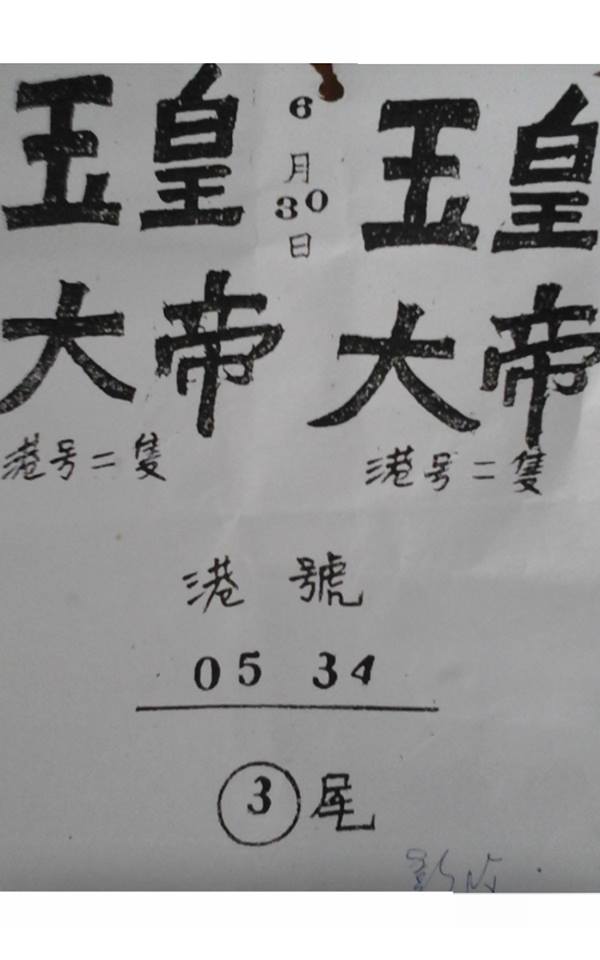 玉皇
大帝
港号二隻
6
月
30
日
玉皇
大帝
港号二隻
港 號
05 34
3 尾